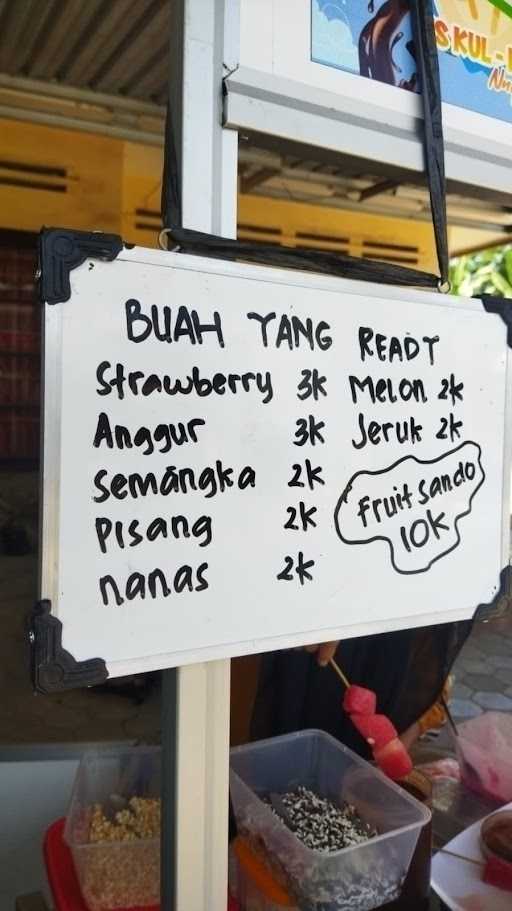 S KUL -
BUAH YANG READY
Strawberry 3k
Anggur 3k
Semangka 2k
Pisang 2k
nanas 2k
Melon 2k
Jeruk 2k
Fruit sando
10K